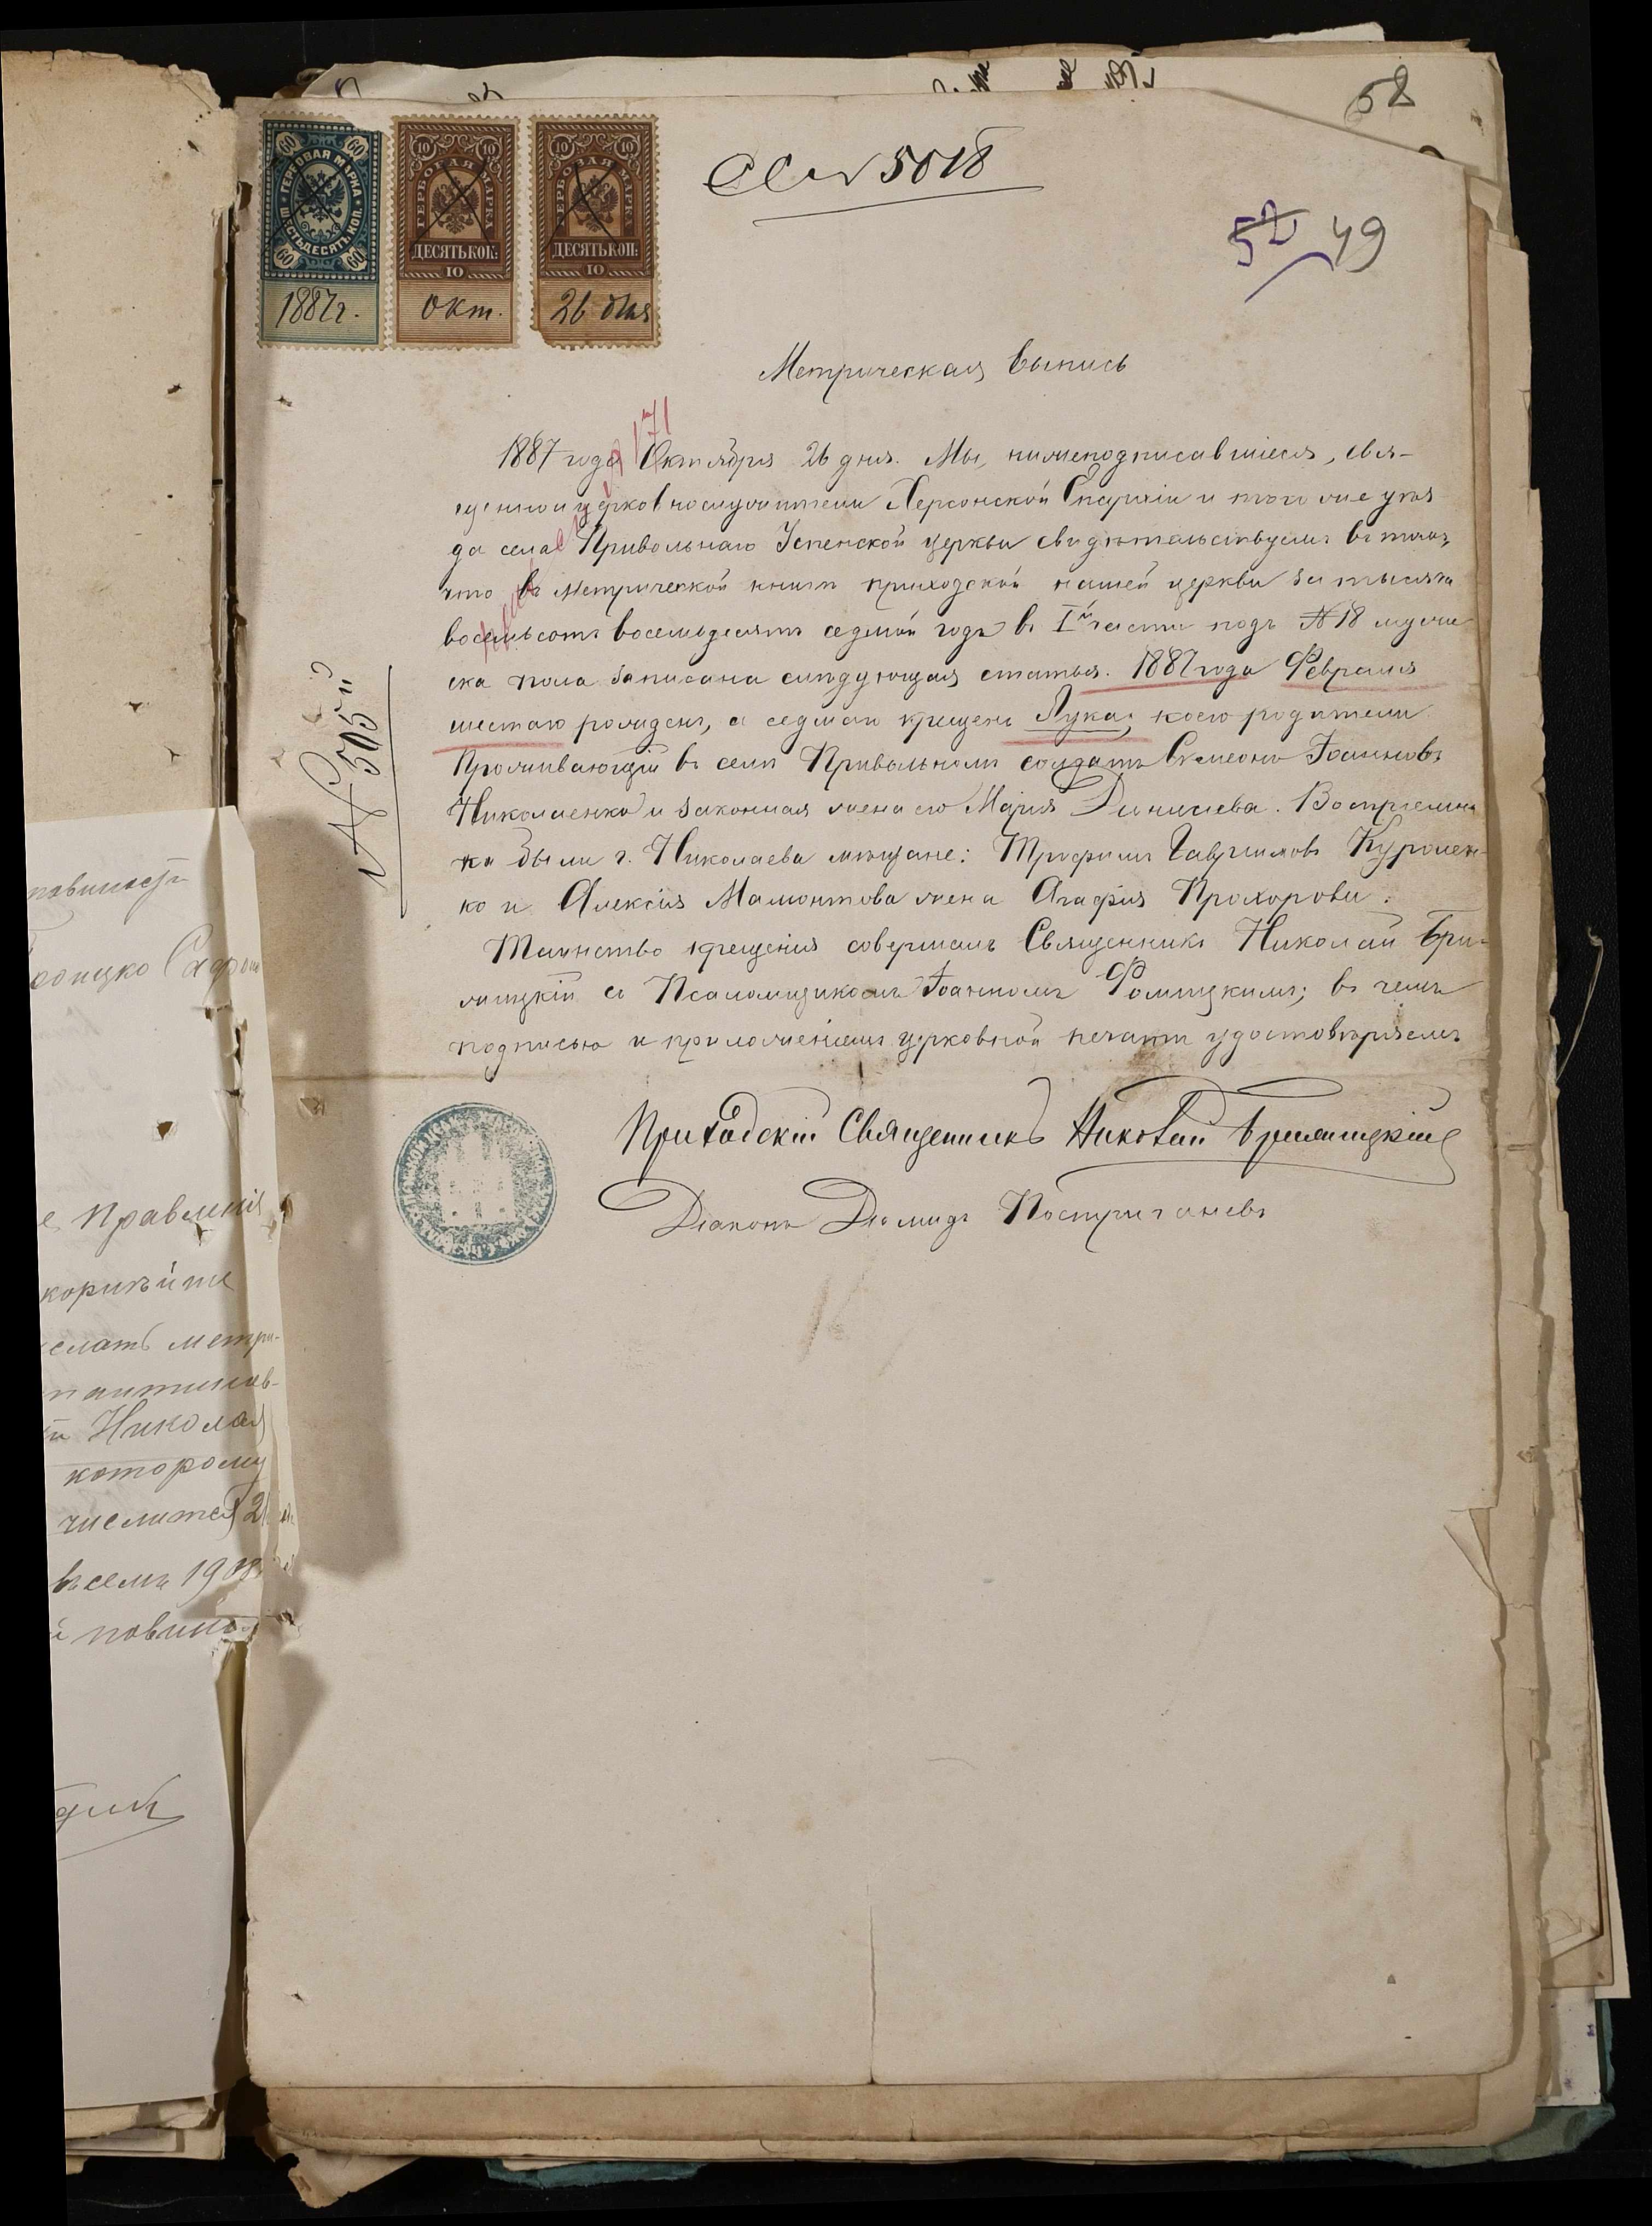 58
5018
52 49
ГЕРБОВАЯ МАРКА
ШЕСТЬДЕСЯТЪ КОП.
60 60 60 60
1887 г.
ГЕРБОВАЯ МАРКА
10 10
ДЕСЯТЬ КОП:
10
Окт.
ГЕРБОВАЯ МАРКА
10 10
ДЕСЯТЬ КОП:
10
26 дня
Метрическая выпись
1887 года Октября 26 дня. Мы, нижеподписавшіеся, свя-
щенно и церковнослужители Херсонской Епархіи и того же уѣз
да села Привольнаго Успенской церкви свидѣтельствуемъ въ томъ,
что въ Метрической книгѣ приходской нашей церкви за тысяча
восемьсотъ восемьдесятъ седмой годъ въ I й части подъ № 18 муже
ска пола записана слѣдующая статья. 1887 года Февраля
шестаго рожденъ, а седмаго крещенъ Лука; коего родители
Проживающій въ селѣ Привольномъ солдатъ Симеонъ Іоанновъ
Николаенко и законная жена его Марія Діонисіева. Воспріемни
ки были г. Николаева мѣщане: Трофимъ Гавриловъ Куролен-
ко и Алексія Мамонтова жена Агафія Прохорова.
Таинство крещенія совершалъ Священникъ Николай Бри-
лицкій съ Псаломщикомъ Іоанномъ Фомицкимъ; въ чемъ
подписью и приложеніемъ церковной печати удостовѣряемъ
Приходскій Священникъ Николай
Діаконъ Діомидъ
№ 505 й
Правленія
елать метри-
Николая
которому
числится 2
въ семъ 1908